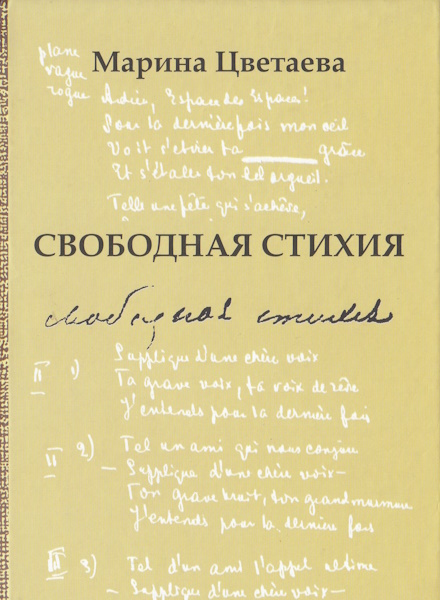 plane
vague
rogue
Марина Цветаева
Adieu, Espace des Espaces!
Pour la dernière fois mon œil
Voit s'étirer ta grâce
Et s'étaler ton bel orgueil.
Telle une fête qui s'achève,
СВОБОДНАЯ СТИХИЯ
свободная стихия
II 1) Supplique d'une chère voix
Ta grave voix, ta voix de rêve
J'entends pour la dernière fois
II 2) Tel un ami qui nous conjure
— Supplique d'une chère voix —
Ton grave bruit, ton grand murmure
J'entends pour la dernière fois
II 3) Tel d'un ami l'appel ultime
— Supplique d'une chère voix —